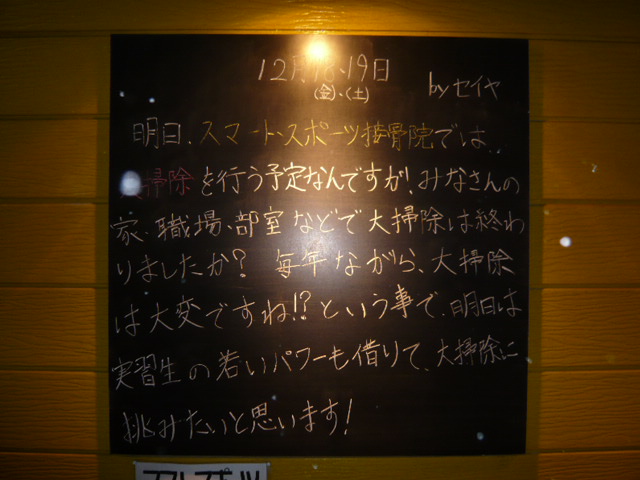 12月18、19日
(金)、(土)
byセイヤ
明日、スマート・スポーツ接骨院では、
掃除を行う予定なんですが、みなさんの
家、職場、部室などで大掃除は終わ
りましたか？ 毎年ながら、大掃除
は大変ですね!?という事で、明日は
実習生の若いパワーも借りて、大掃除に
挑みたいと思います！